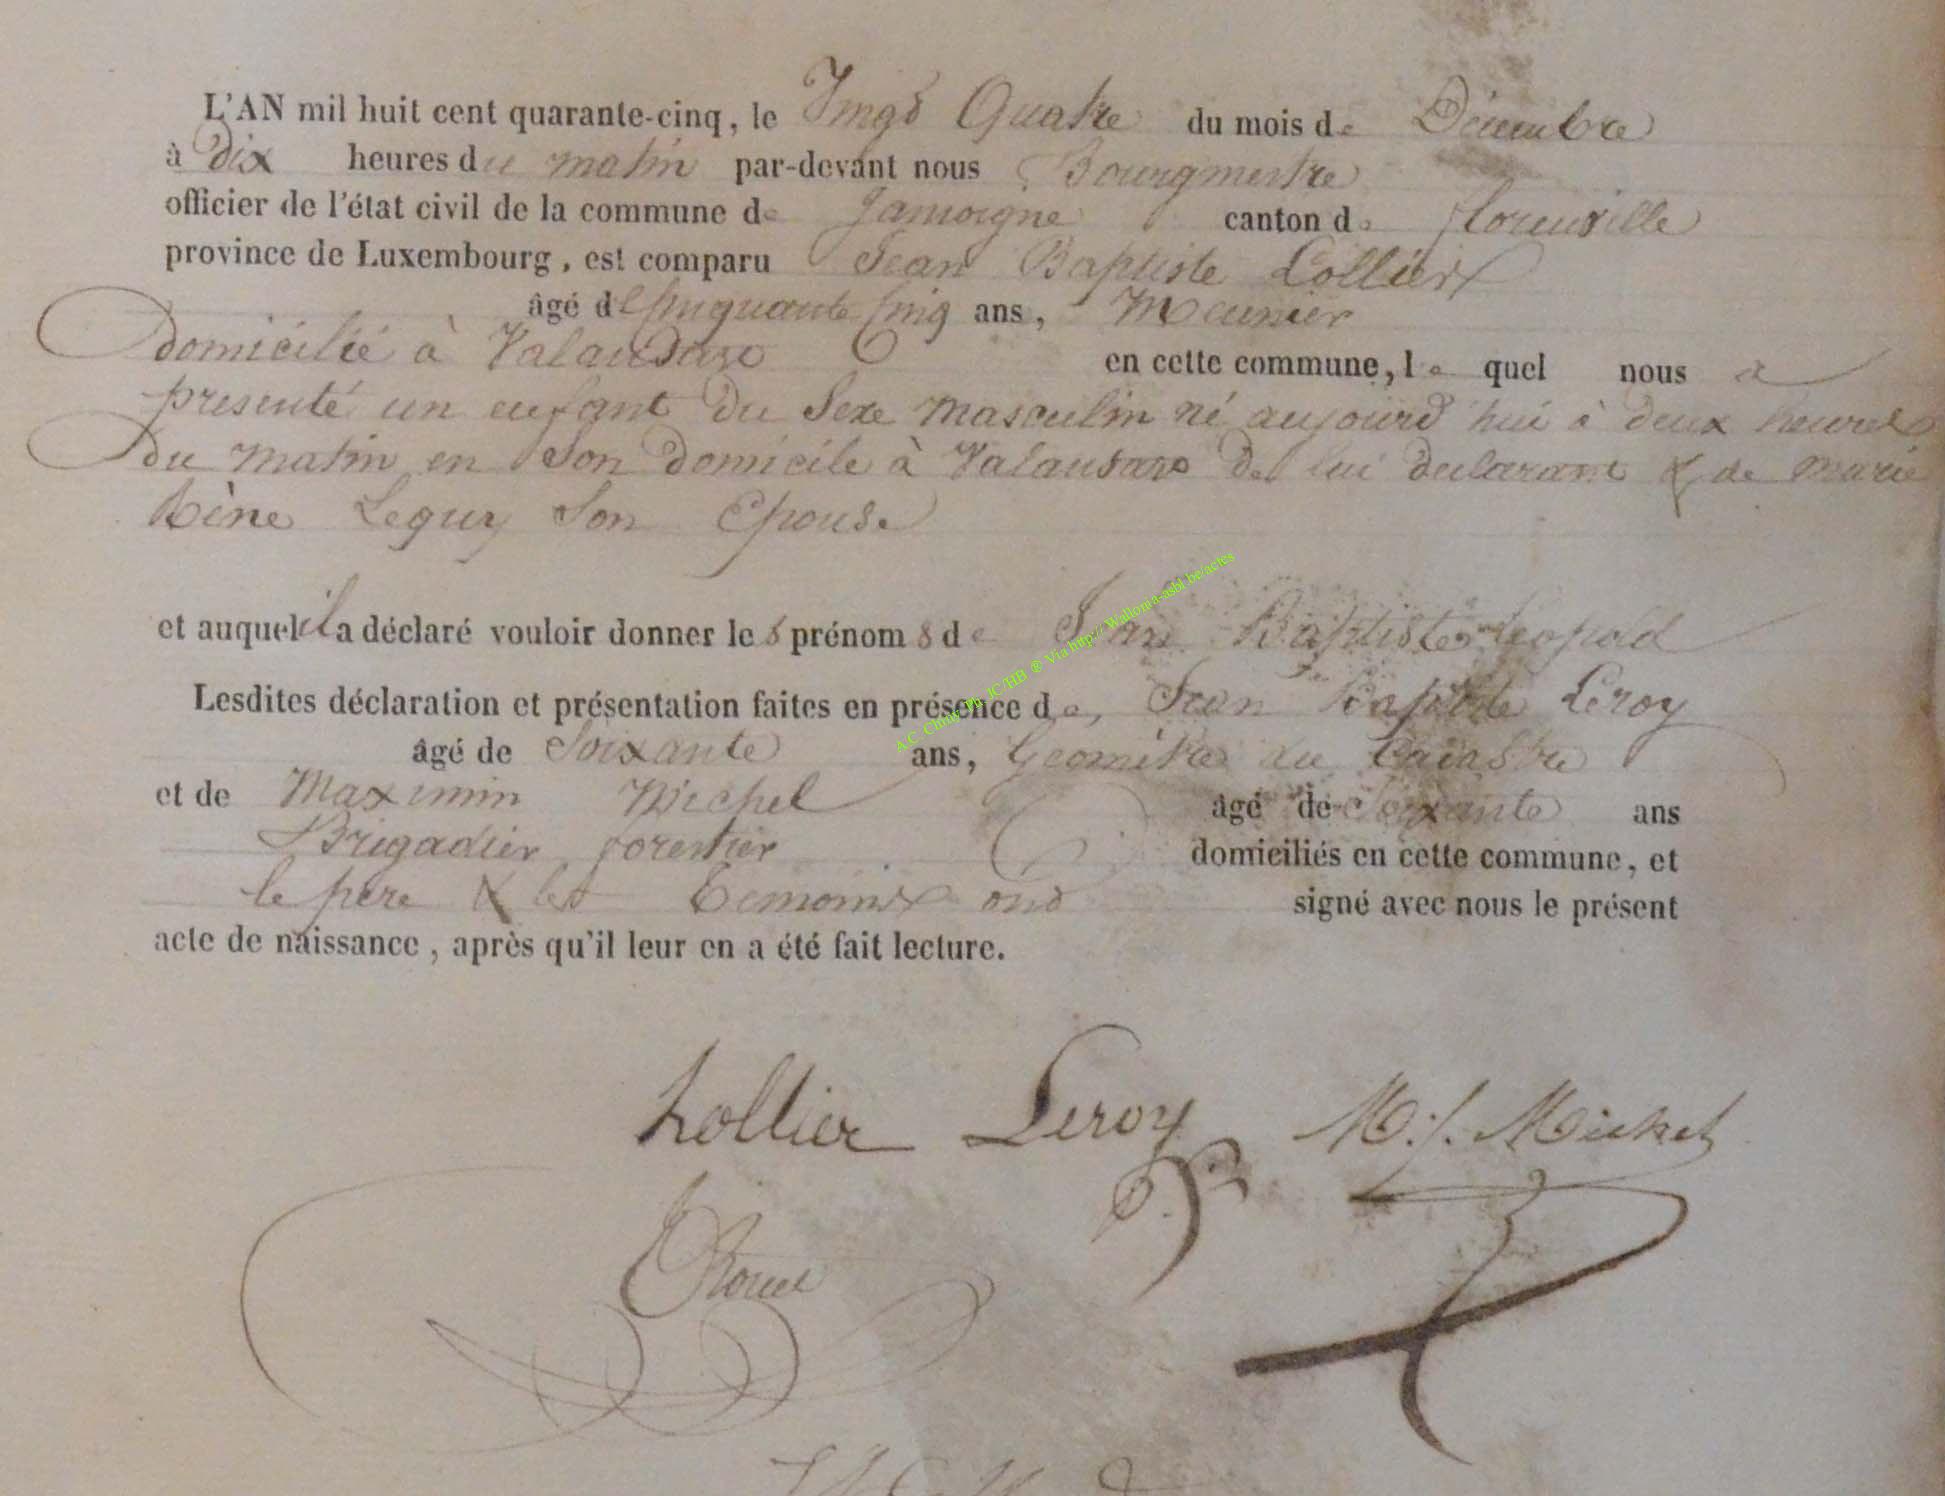 L'AN mil huit cent quarante-cinq, le Vingt Quatre du mois de Décembre
à Dix heures du matin par-devant nous Bourgmestre
officier de l'état civil de la commune de Jamoigne canton de florenville
province de Luxembourg, est comparu Jean Baptiste Lollier
âgé de Cinquante Cinq ans, Meunier
domicilié à Valansart en cette commune, le quel nous a
presenté un enfant du Sexe masculin né aujourd'hui à deux heures
du matin en Son domicile à Valansart de lui declarant & de marie
Rène Leguy Son Epouse
et auquel il a déclaré vouloir donner les prénoms de Jean Baptiste Leopold
Lesdites déclaration et présentation faites en présence de, Jean Baptiste Leroy
âgé de Soixante ans, Géomètre du Cadastre
et de Maximin Michel âgé de Soixante ans
Brigadier forestier domiciliés en cette commune, et
le père & les temoins ont signé avec nous le présent
acte de naissance, après qu'il leur en a été fait lecture.
Lollier Leroy M.J. Michel
A.C. Chiny Ph. JC/HB ® Via http://Wallonia-asbl.be/actes